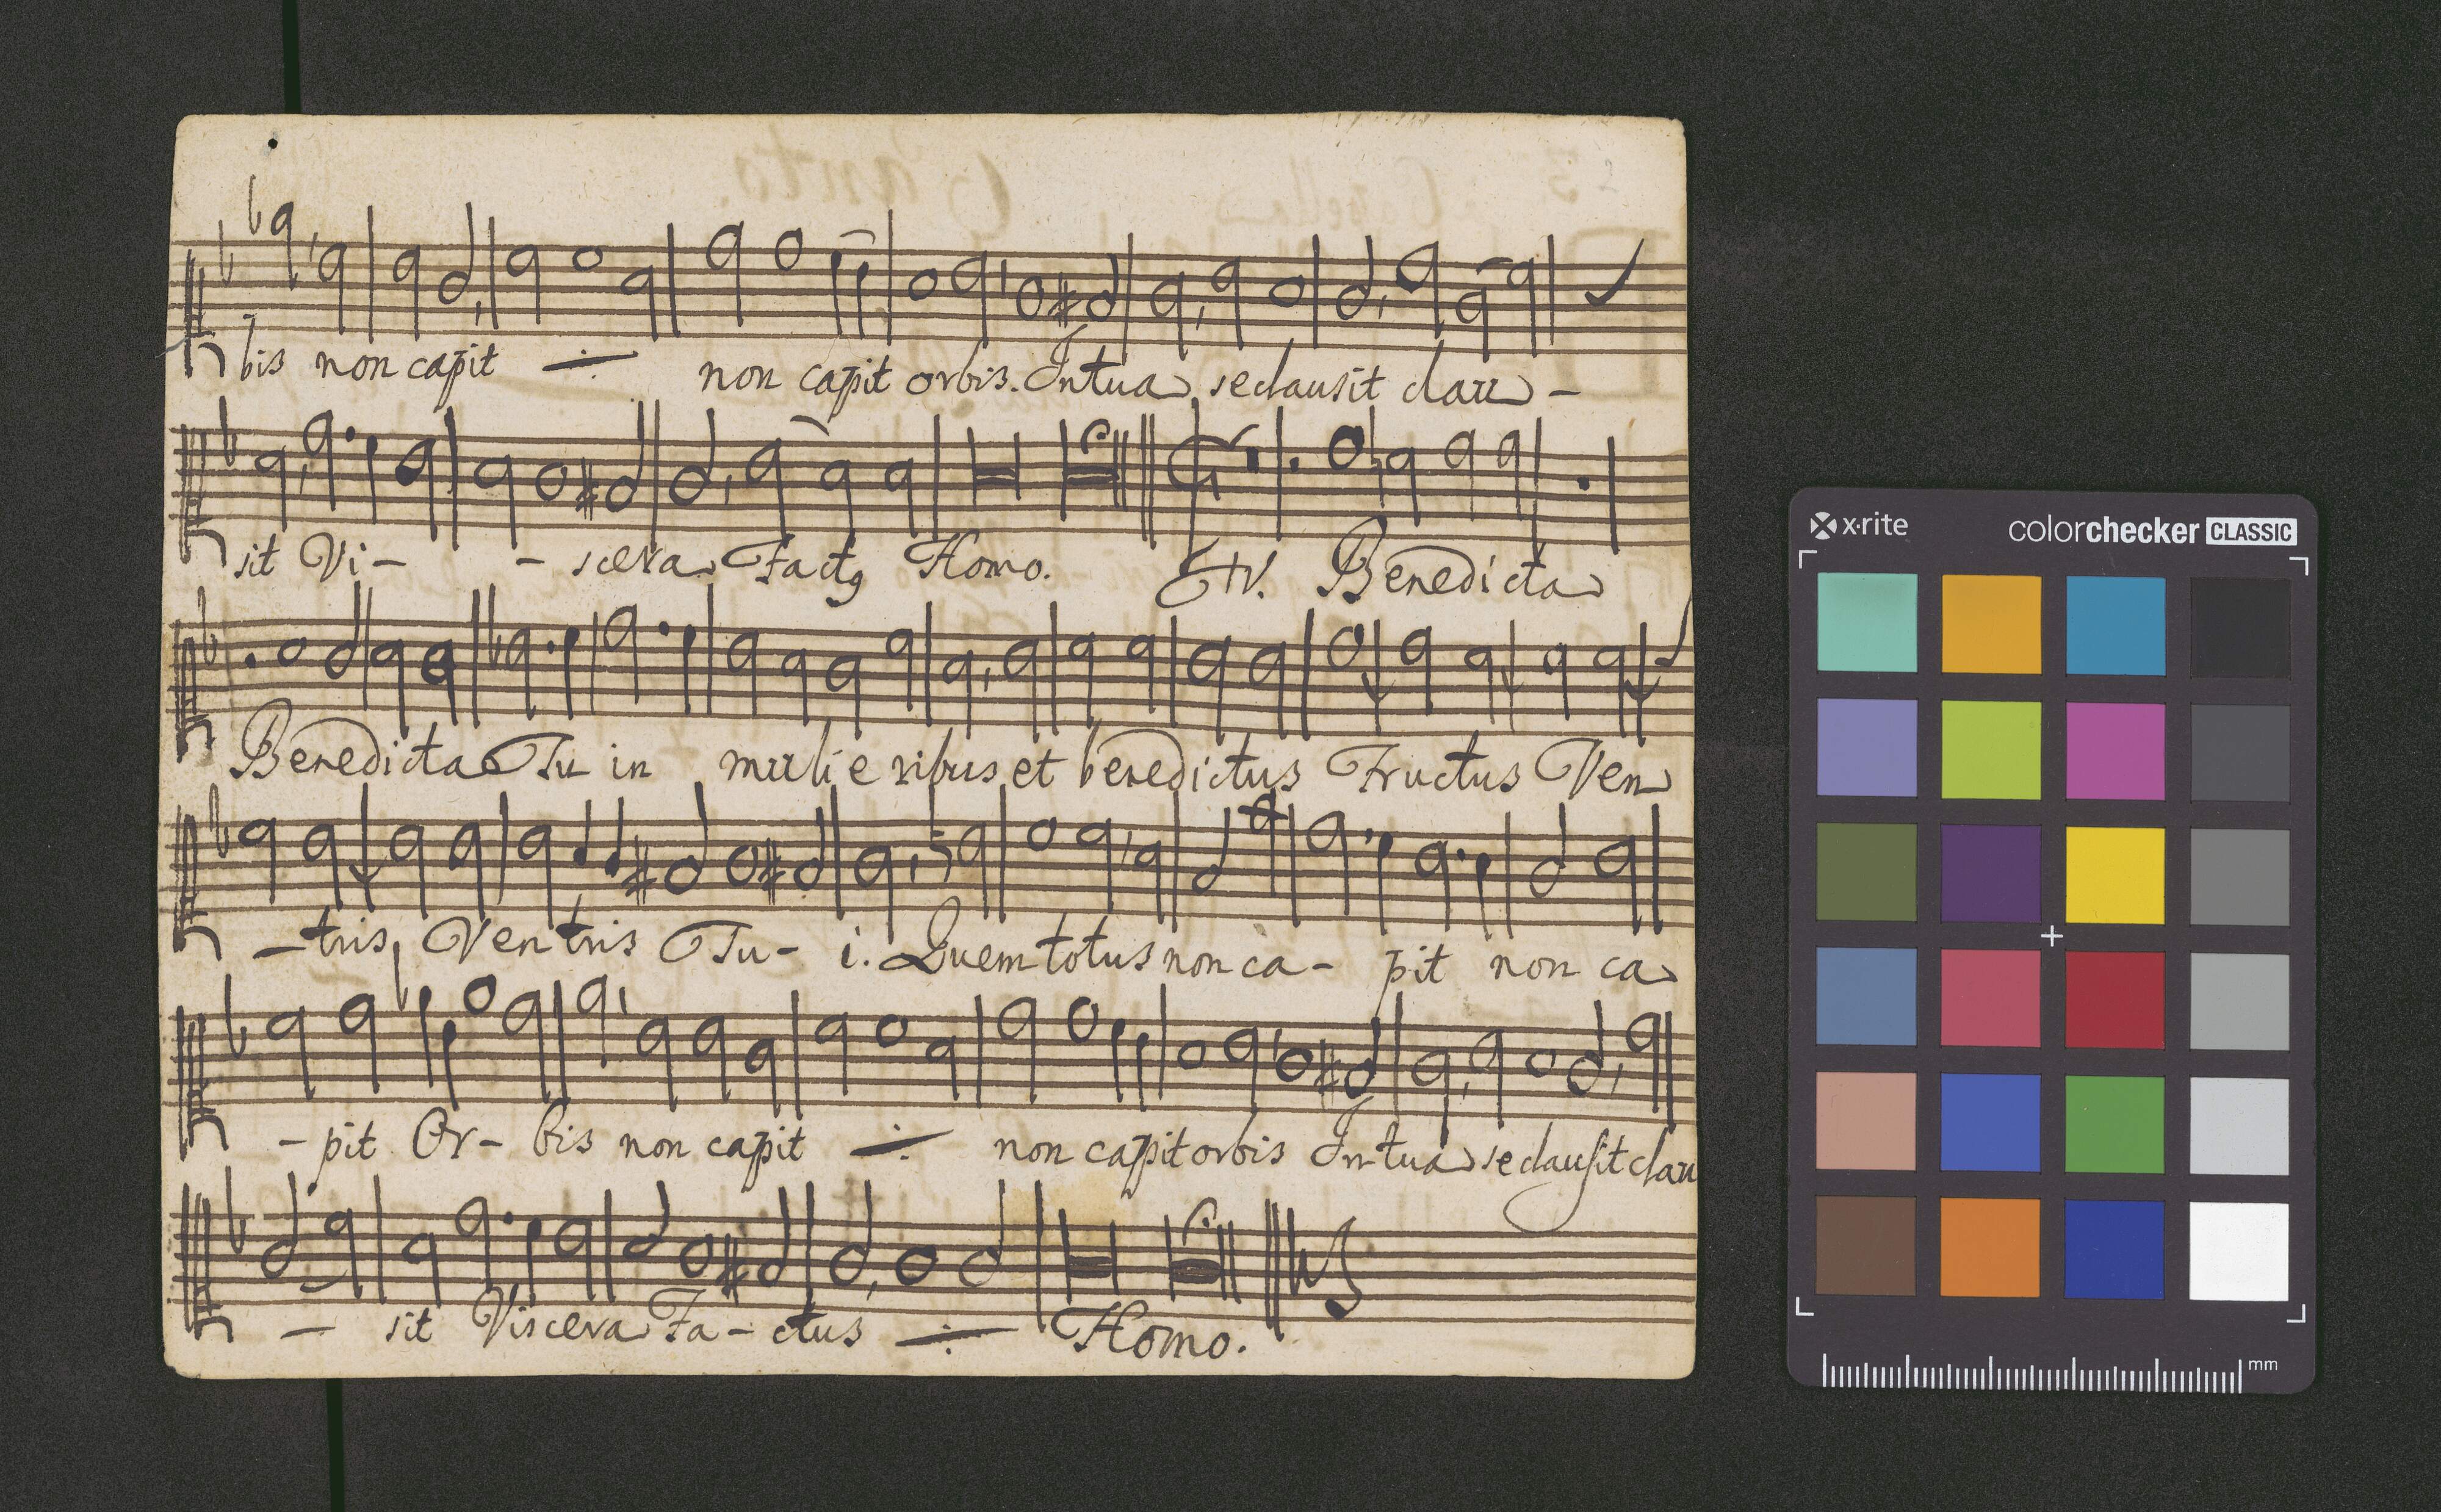 bis non capit ∻ non capit orbis. In tua se clausit clau -
sit Vi - - scera Factꝯ Homo. ℣. Benedicta
Benedicta Tu in mulieribus et benedictus Fructus Ven
- tris, Ventris Tu - i. Quem totus non ca - pit non ca
- pit Or - bis non capit ∻ non capit orbis In tua se clausit clau
- sit Viscera Fa - ctus ∻ Homo.
x·rite colorchecker CLASSIC
mm